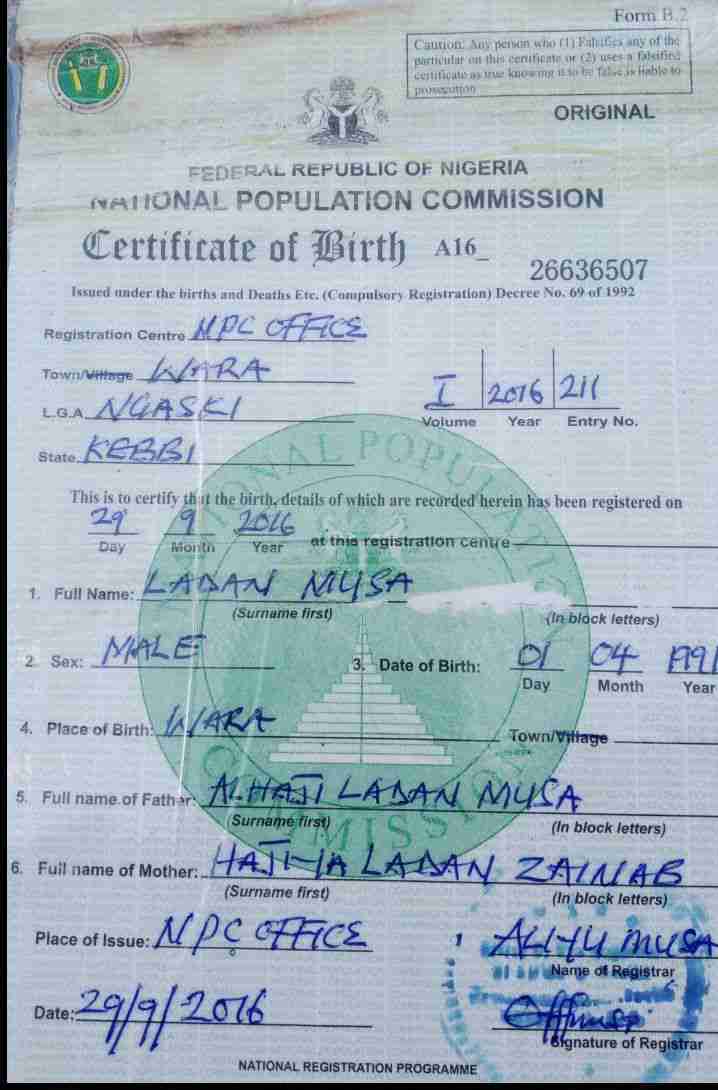 Form B.2
Caution: Any person who (1) Falsifies any of the
particular on this certificate or (2) uses a falsified
certificate as true knowing it to be false is liable to
prosecution
ORIGINAL
FEDERAL REPUBLIC OF NIGERIA
NATIONAL POPULATION COMMISSION
Certificate of Birth A16_
26636507
Issued under the births and Deaths Etc. (Compulsory Registration) Decree No. 69 of 1992
Registration Centre NPC OFFICE
Town/Village WARA
L.G.A. NGASKI
State KEBBI
I 2016 211
Volume Year Entry No.
This is to certify that the birth, details of which are recorded herein has been registered on
29 9 2016 at this registration centre
Day Month Year
1. Full Name: LADAN MUSA
(Surname first) (In block letters)
2. Sex: MALE 3. Date of Birth: 01 04 1991
Day Month Year
4. Place of Birth: WARA Town/Village
5. Full name of Father: ALHAJI LADAN MUSA
(Surname first) (In block letters)
6. Full name of Mother: HAJIYA LADAN ZAINAB
(Surname first) (In block letters)
Place of Issue: NPC OFFICE ALIYU MUSA
Name of Registrar
Date: 29/9/2016
Signature of Registrar
NATIONAL REGISTRATION PROGRAMME
NATIONAL POPULATION COMMISSION